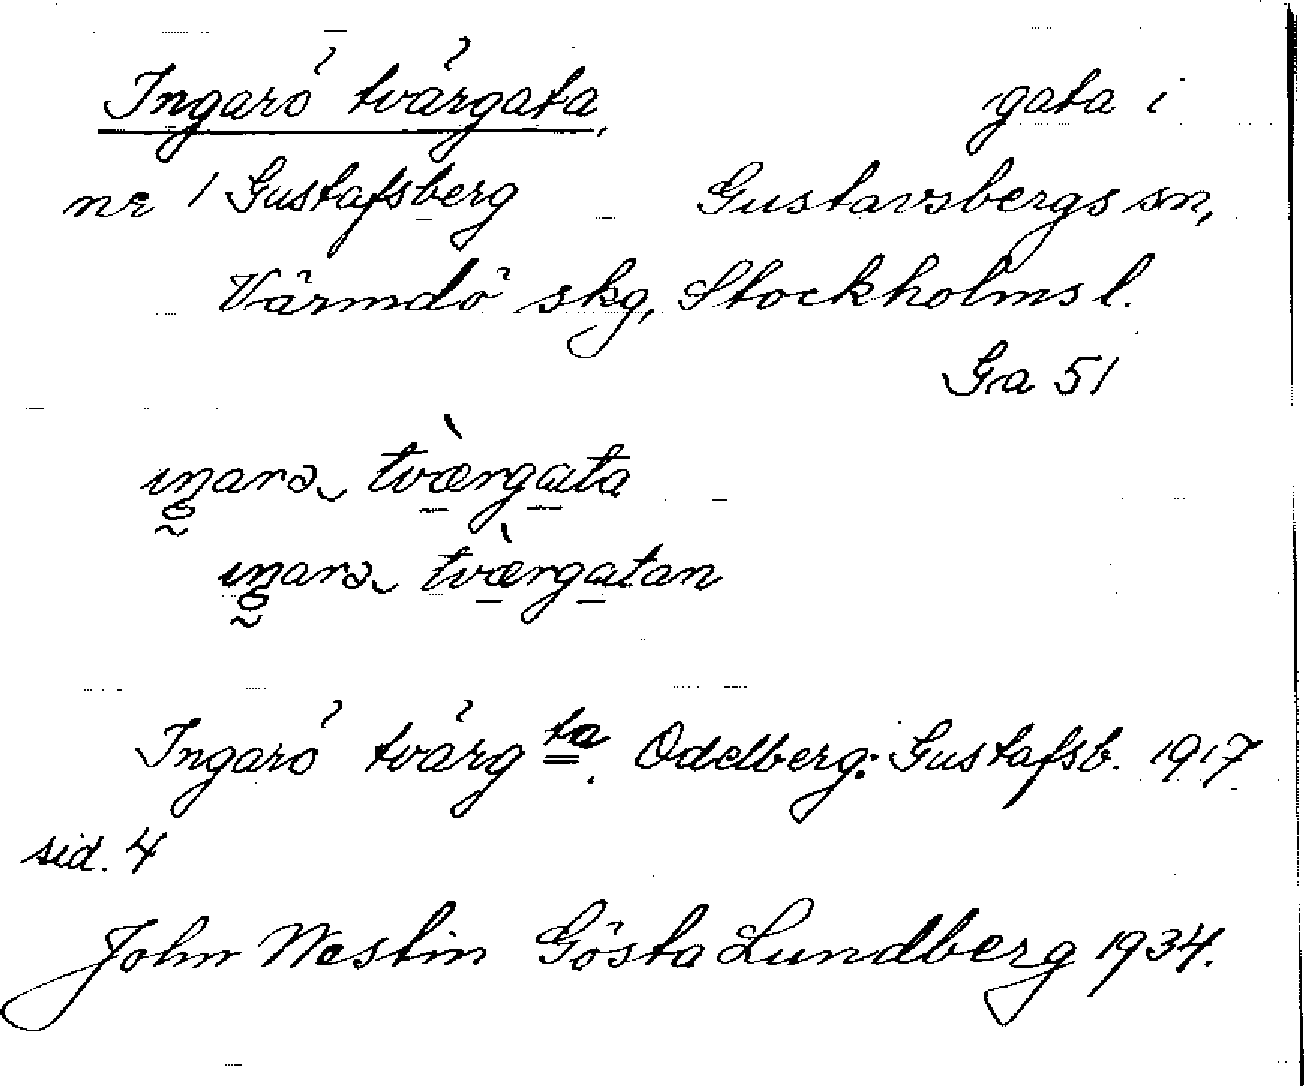 Ingarö tvärgata, gata i
nr 1 Gustafsberg Gustavsbergs sn,
Värmdö skg, Stockholms l.
Ga 51
ıŋarə tvæ̀rgata
ıŋarə tvæ̀rgatan
Ingarö tvärg ta. Odelberg: Gustafsb. 1917
sid. 4
John Westin Gösta Lundberg 1934.